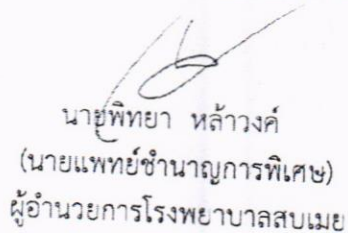 นายพิทยา หล้าวงค์
(นายแพทย์ชำนาญการพิเศษ)
ผู้อำนวยการโรงพยาบาลสบเมย